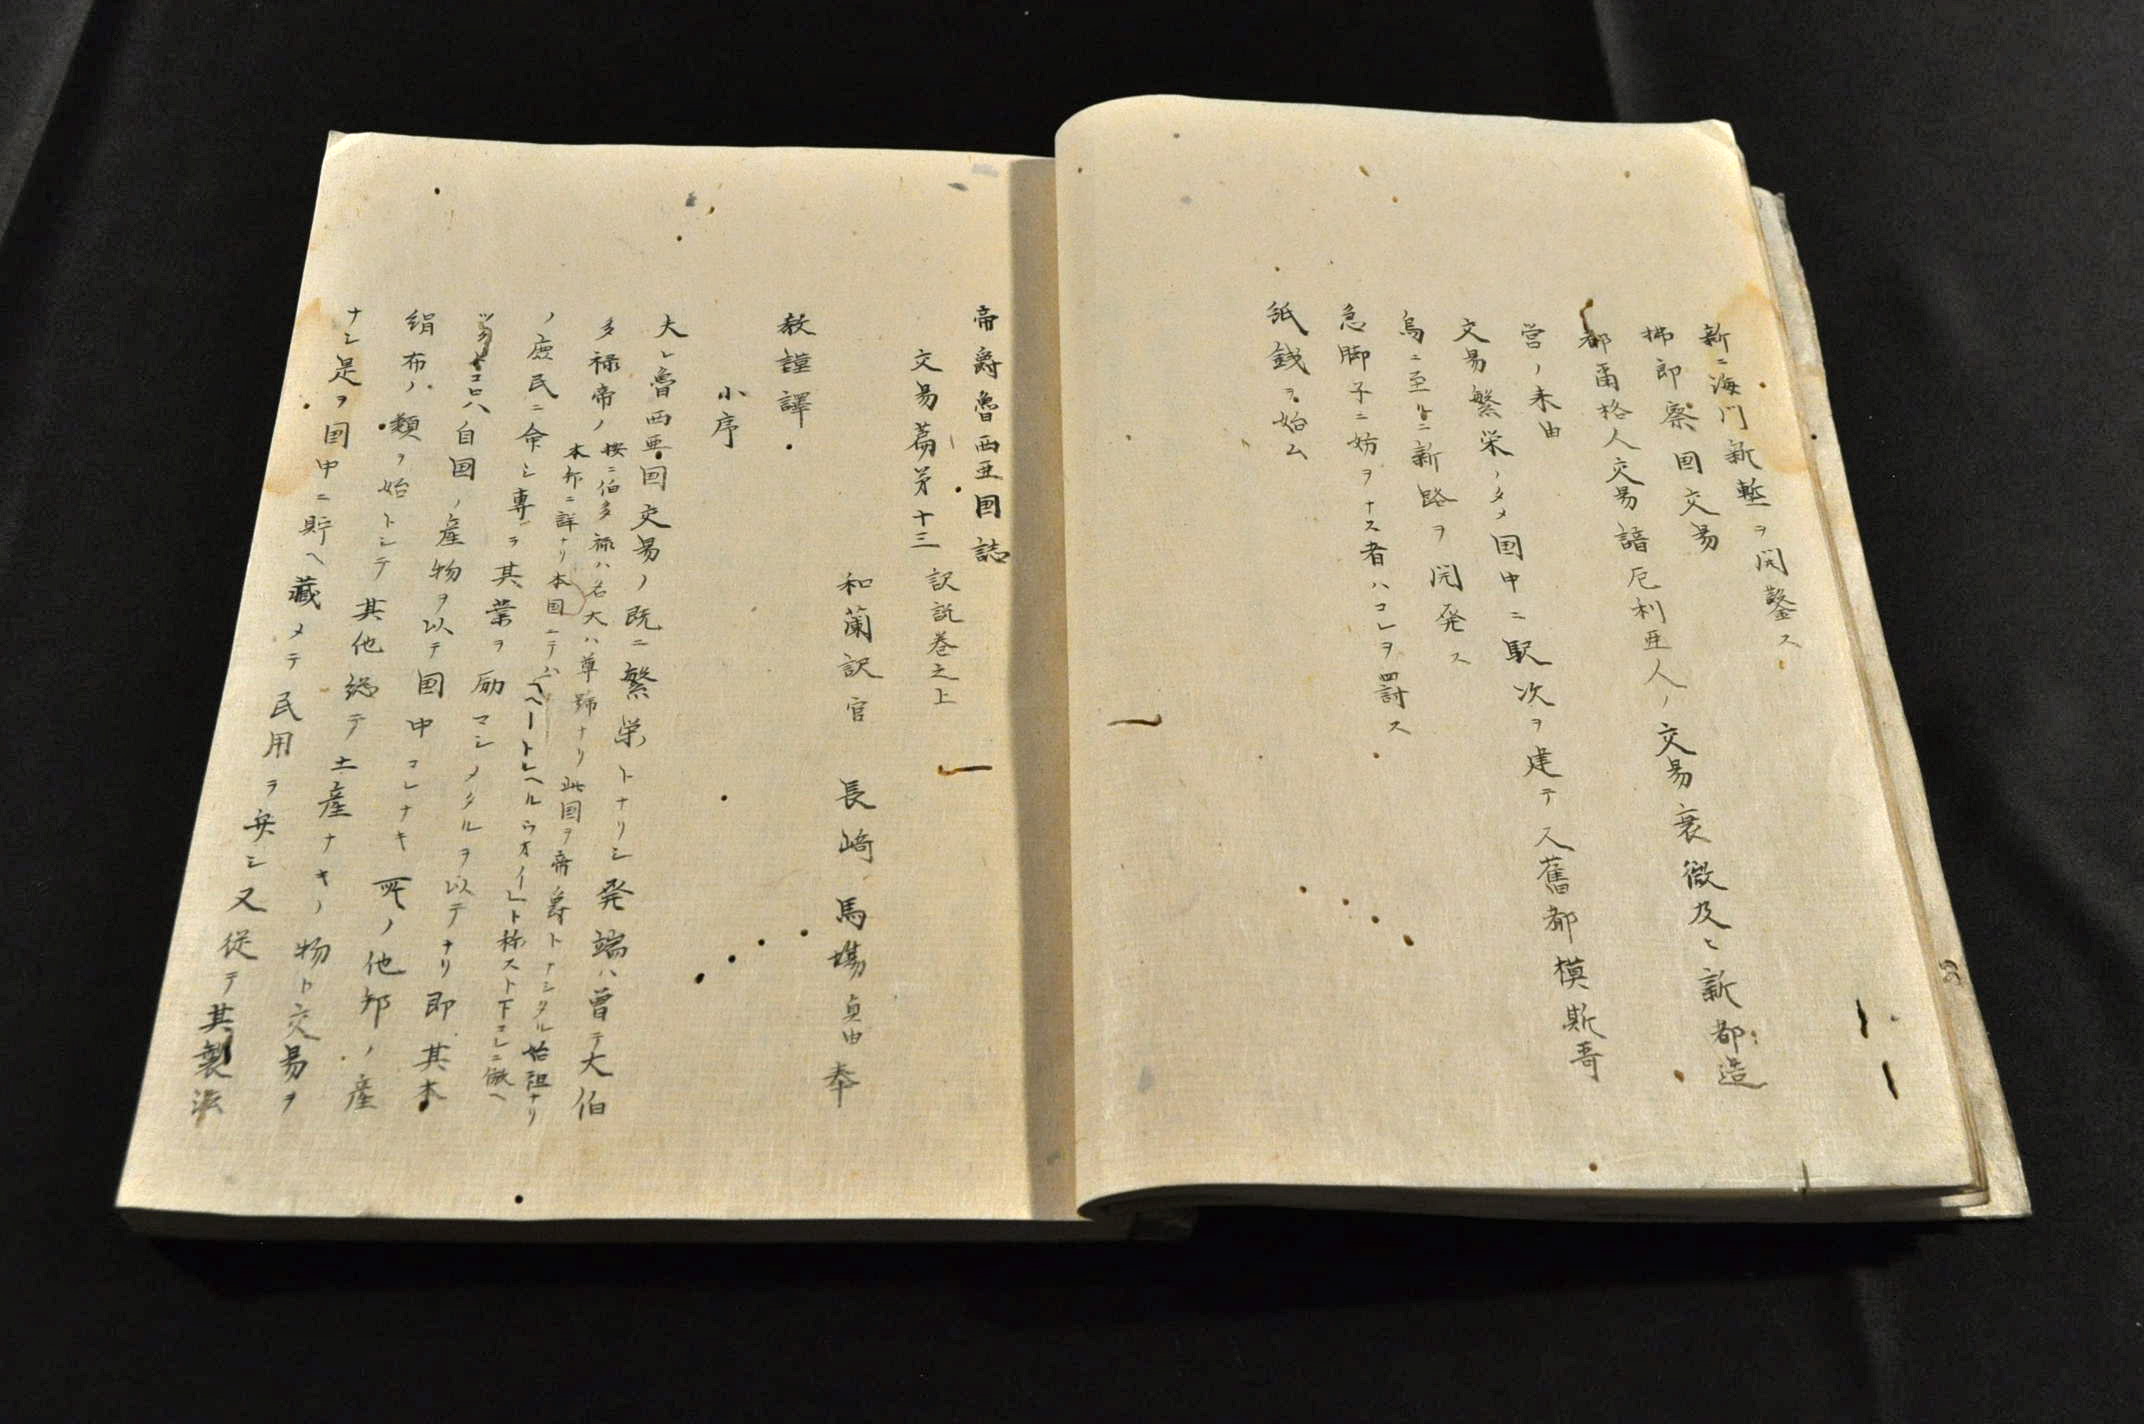 新ニ海門新塹ヲ開鑿ス
拂郎察国交易
都爾格人交易諳厄利亜人ノ交易衰微及ヒ新都造
営ノ来由
交易繁栄ノタメ国中ニ駅次ヲ建テ又舊都模斯哥
烏ニ至ルニ新路ヲ開発ス
急脚子ニ妨ヲナス者ハコレヲ罰ス
紙銭ヲ始ム
帝爵魯西亜国誌
交易篇第十三 訳説巻之上
和蘭訳官 長崎 馬場貞由奉
教謹譯
小序
大ヒ魯西亜国交易ノ既ニ繁栄トナリシ発端ハ曽テ大伯
多禄帝ノ 按ニ伯多禄ハ名大ハ尊号ナリ此国ヲ帝爵トナシタル始祖ナリ
本邦ニ詳ナリ本国ニテハ「ペートルヘルウオイ」ト称スト下コレニ傚ヘ
ノ庶民ニ命シ専ラ其業ヲ励マシメタルヲ以テナリ即其本
自国ノ産物ヲ以テ国中コレナキ所ノ他邦ノ産
絹布ノ類ヲ始トシテ其他総テ土産ナキノ物ト交易ヲ
ナシ是ヲ国中ニ貯ヘ藏メテ民用ヲ矣シ又従テ其製法